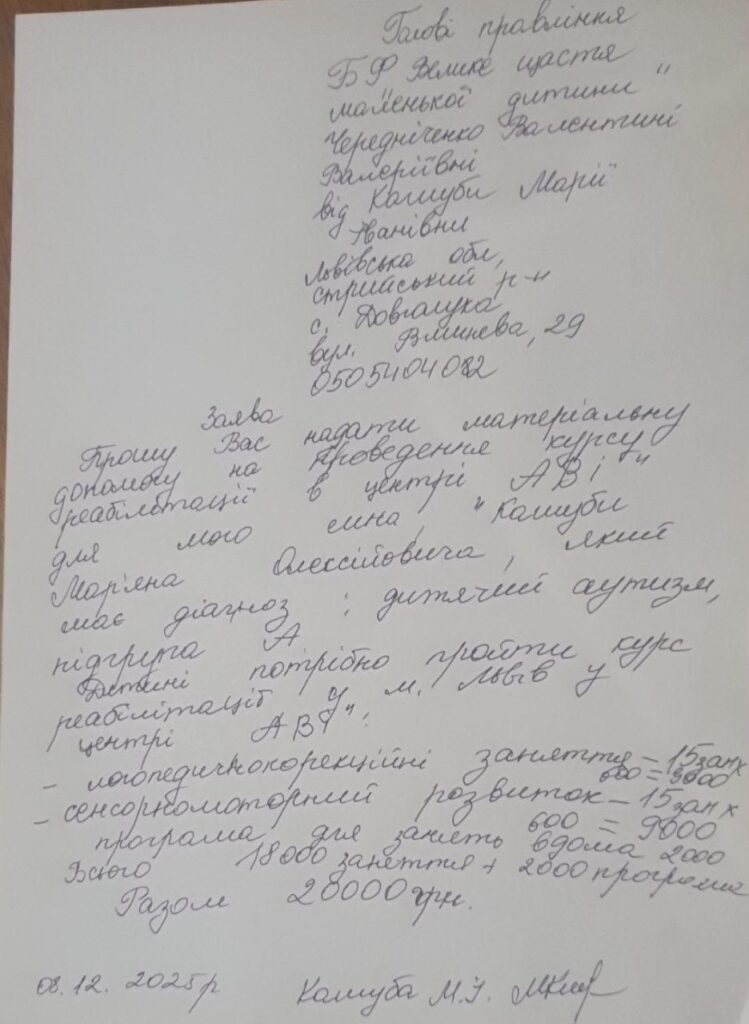 Голові правління
БФ "Велике щастя
маленької дитини"
Чередніченко Валєнтині
Валєріївні
від Кашуби Марії
Іванівни
Львівська обл,
стрийський р-н
с. Довголука
вул. 29
0505404082
Заява
Прошу Вас надати матеріальну
допомогу на проведення курсу
реабілітації в центрі "АВІ"
для мого сина, Кашуби
Мар'яна Олексійовича, який
має діагноз: дитячий аутизм,
підгрупа А
Дитині потрібно пройти курс
реабілітації у м. Львів у
центрі "АВІ":
- логопедичнокорекційні заняття - 15 зан х
600 = 9000
- сенсорномоторний розвиток - 15 зан х
600 = 9000
програма для занять вдома 2000
Всього 18000 заняття + 2000 програма
Разом 20000 грн.
08.12.2025р Кашуба М.І.